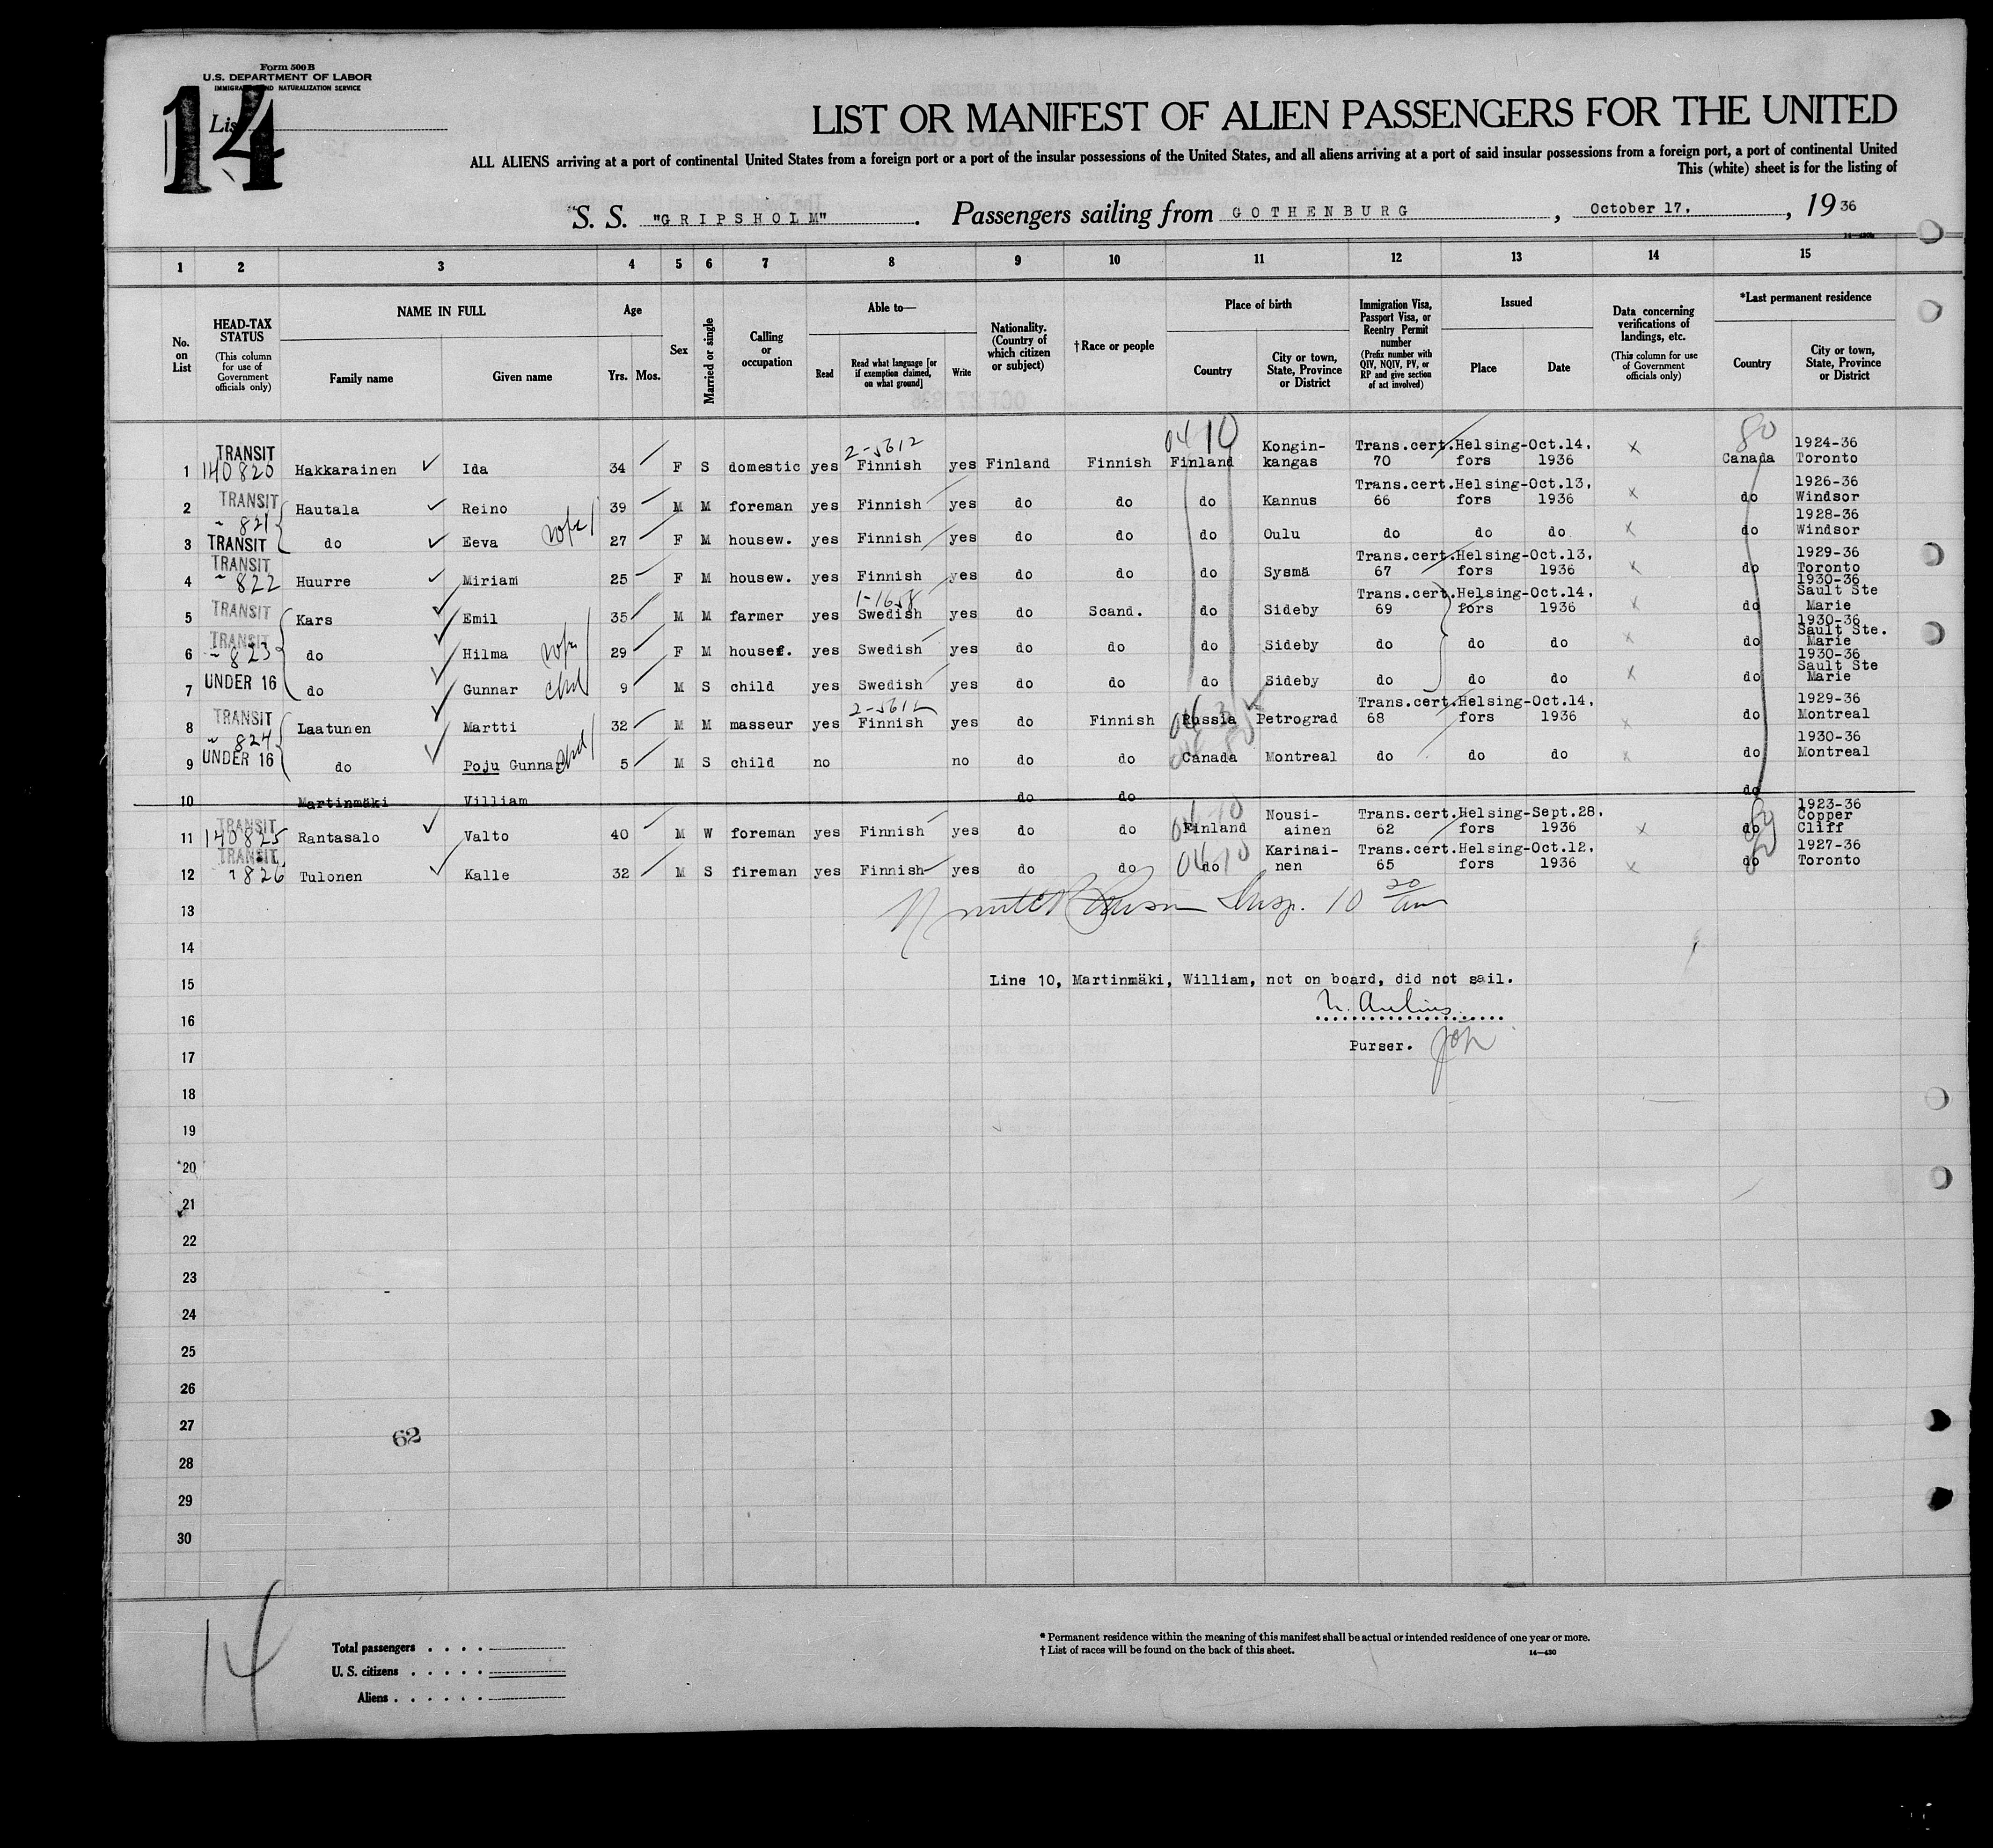 Form 500 B
U.S. DEPARTMENT OF LABOR
IMMIGRATION AND NATURALIZATION SERVICE
List 14
LIST OR MANIFEST OF ALIEN PASSENGERS FOR THE UNITED
ALL ALIENS arriving at a port of continental United States from a foreign port or a port of the insular possessions of the United States, and all aliens arriving at a port of said insular possessions from a foreign port, a port of continental United
This (white) sheet is for the listing of
S. S. "GRIPSHOLM". Passengers sailing from GOTHENBURG, October 17, 1936
1 2 3 4 5 6 7 8 9 10 11 12 13 14 15
No. on List
HEAD-TAX STATUS (This column for use of Government officials only)
NAME IN FULL Family name Given name
Age Yrs. Mos.
Sex
Married or single
Calling or occupation
Able to— Read Read what language [or if exemption claimed, on what ground] Write
Nationality. (Country of which citizen or subject)
†Race or people
Place of birth Country City or town, State, Province or District
Immigration Visa, Passport Visa, or Reentry Permit number (Prefix number with QIV, NQIV, PV, or RP and give section of act involved)
Issued Place Date
Data concerning verifications of landings, etc. (This column for use of Government officials only)
*Last permanent residence Country City or town, State, Province or District
1 TRANSIT 140820 Hakkarainen Ida 34 F S domestic yes 2-5612 Finnish yes Finland Finnish 04 10 Finland Kongin-kangas Trans.cert. 70 Helsing-fors Oct.14, 1936 x 80 Canada 1924-36 Toronto
2 TRANSIT 821 Hautala Reino 39 M M foreman yes Finnish yes do do do Kannus Trans.cert. 66 Helsing-fors Oct.13, 1936 x do 1926-36 Windsor
3 TRANSIT do Eeva wife 27 F M housew. yes Finnish yes do do do Oulu do do do x do 1928-36 Windsor
4 TRANSIT 822 Huurre Miriam 25 F M housew. yes Finnish yes do do do Sysmä Trans.cert. 67 Helsing-fors Oct.13, 1936 x do 1929-36 Toronto
5 TRANSIT Kars Emil 35 M M farmer yes 1-1658 Swedish yes do Scand. do Sideby Trans.cert. 69 Helsing-fors Oct.14, 1936 x do 1930-36 Sault Ste Marie
6 TRANSIT 823 do Hilma wife 29 F M housef. yes Swedish yes do do do Sideby do do do x do 1930-36 Sault Ste. Marie
7 UNDER 16 do Gunnar chd 9 M S child yes Swedish yes do do do Sideby do do do x do 1930-36 Sault Ste Marie
8 TRANSIT 824 Laatunen Martti 32 M M masseur yes 2-5612 Finnish yes do Finnish Russia Petrograd Trans.cert. 68 Helsing-fors Oct.14, 1936 x do 1929-36 Montreal
9 UNDER 16 do Poju Gunnar chd 5 M S child no no do do Canada Montreal do do do x do 1930-36 Montreal
10 Martinmäki Villiam do do do
11 TRANSIT 140825 Rantasalo Valto 40 M W foreman yes Finnish yes do do Finland Nousi-ainen Trans.cert. 62 Helsing-fors Sept.28, 1936 x do 1923-36 Copper Cliff
12 TRANSIT 826 Tulonen Kalle 32 M S fireman yes Finnish yes do do do Karinai-nen Trans.cert. 65 Helsing-fors Oct.12, 1936 x do 1927-36 Toronto
13 Insp. 10
14
15 Line 10, Martinmäki, William, not on board, did not sail.
16
17 Purser.
18
19
20
21
22
23
24
25
26
27
62
28
29
30
14
Total passengers . . . .
U. S. citizens . . . . .
Aliens . . . . . .
* Permanent residence within the meaning of this manifest shall be actual or intended residence of one year or more.
† List of races will be found on the back of this sheet.
14—430